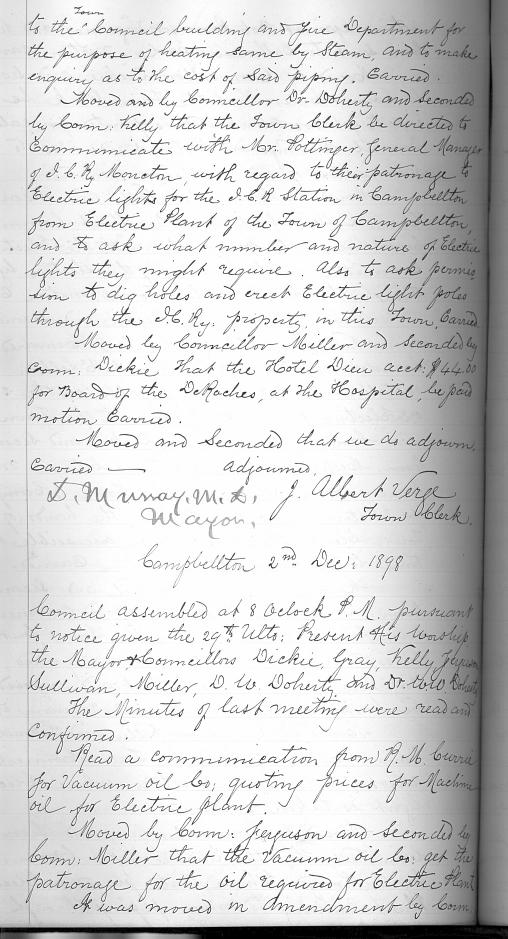 Town
to the Council building and Fire Department for
the purpose of heating same by Steam, and to make
enquiry as to the cost of said piping. Carried.
Moved and by Councillor Dr. Doherty and Seconded
by Coun: Kelly that the Town Clerk be directed to
Communicate with Mr. Pottinger, General Manager
of I.C.Ry Moncton, with regard to their patronage to
Electric lights for the I.C.R Station in Campbellton
from Electric Plant of the Town of Campbellton,
and to ask what number and nature of Electric
lights they might require. Also to ask permis
sion to dig holes and erect Electric light poles
through the I.C.Ry. property in this Town. Carried
Moved by Councillor Miller and Seconded by
Coun: Dickie That the Hotel Dieu acct: $44.00
for Board of the DeRoches, at the Hospital, be paid
motion Carried.
Moved and Seconded that we do adjourn.
Carried — Adjourned.
D. Murray, M.D. J. Albert Verge
Mayor. Town Clerk.
Campbellton 2nd Dec: 1898
Council assembled at 8 Oclock P.M. pursuant
to notice given the 29th Ulto: Present His Worship
the Mayor & Councillors Dickie, Gray, Kelly, Ferguson
Sullivan, Miller, D. W. Doherty and Dr. Doherty
The Minutes of last meeting were read and
Confirmed.
Read a communication from R. M. Currie
for Vacuum oil Co; quoting prices for Machine
oil for Electric plant.
Moved by Coun: Ferguson and Seconded by
Coun: Miller that the Vacuum oil Co: get the
patronage for the oil required for Electric Plant
It was moved in amendment by Coun.